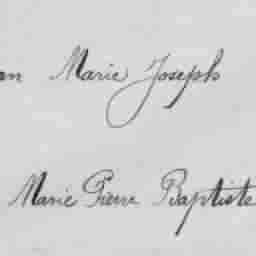 an Marie Joseph
Marie Pierre Baptiste